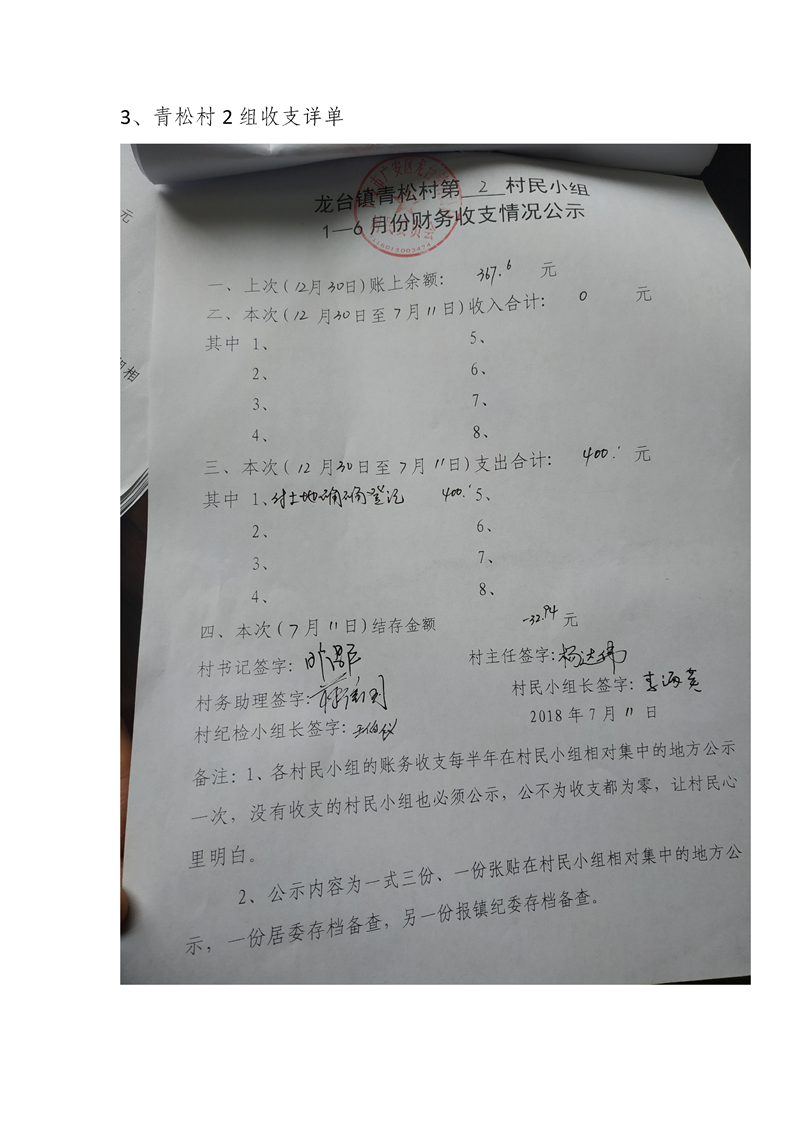 3、青松村2组收支详单
元
龙台镇青松村第 2 村民小组
1—6月份财务收支情况公示
一、上次(12月30日)账上余额: 367.6 元
二、本次(12月30日至7月11日)收入合计: 0 元
其中 1、 5、
2、 6、
3、 7、
4、 8、
三、本次(12月30日至7月11日)支出合计: 400. 元
其中 1、付土地确 登记 400. 5、
2、 6、
3、 7、
4、 8、
四、本次(7月11日)结存金额 -32.94 元
村书记签字: 村主任签字:杨达伟
村务助理签字: 村民小组长签字:
村纪检小组长签字:王伯仪 2018年7月11日
备注:1、各村民小组的账务收支每半年在村民小组相对集中的地方公示
一次,没有收支的村民小组也必须公示,公不为收支都为零,让村民心
里明白。
2、公示内容为一式三份、一份张贴在村民小组相对集中的地方公
示,一份居委存档备查,另一份报镇纪委存档备查。